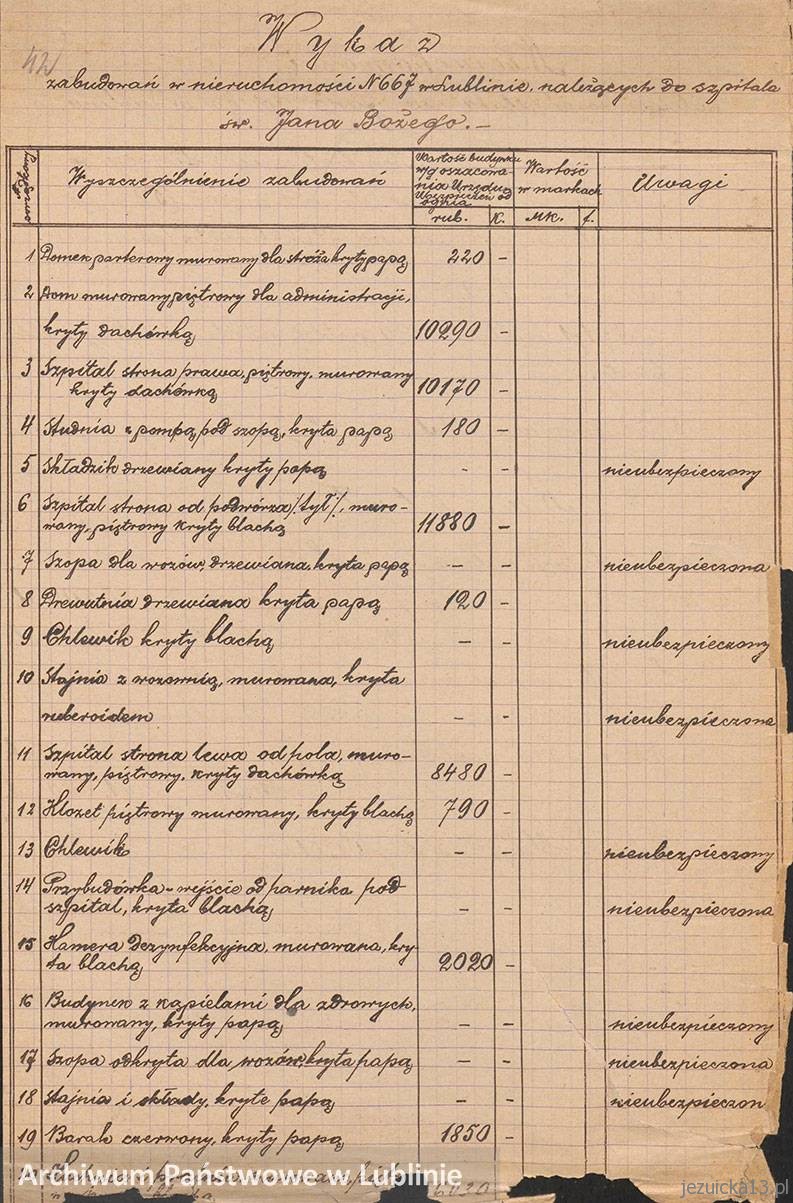 42
Wykaz
zabudowań w nieruchomości N667 w Lublinie, należących do szpitala
św. Jana Bożego.
Wyszczególnienie zabudowań
Wartość budynku
wg oszacowa-
nia Urzędu
Ubezpieczeń od
ognia
rub. K.
Wartość
w markach
Mk. f.
Uwagi
1 Domek parterowy murowany dla stróża kryty papą 220 -
2 Dom murowany piętrowy dla administracji,
kryty dachówką 10290 -
3 Szpital strona prawa, piętrowy, murowany
kryty dachówką 10170 -
4 Studnia z pompą pod szopą, kryta papą 180 -
5 Składzik drzewiany kryty papą - - nieubezpieczony
6 Szpital strona od podwórza /:tył:/, muro-
wany, piętrowy kryty blachą 11880 -
7 Szopa dla wozów, drzewiana, kryta papą - - nieubezpieczona
8 Drewutnia drzewiana kryta papą 120 -
9 Chlewik kryty blachą - - nieubezpieczony
10 Stajnia z wozownią, murowana, kryta
ruberoidem - - nieubezpieczona
11 Szpital strona lewa od pola, muro-
wany, piętrowy, kryty dachówką 8480 -
12 Klozet piętrowy murowany, kryty blachą 790 -
13 Chlewik - - nieubezpieczony
14 Przybudówka - wejście od parnika pod
szpital, kryta blachą - - nieubezpieczona
15 Kamera dezynfekcyjna, murowana, kry
ta blachą 2020 -
16 Budynek z kąpielami dla zdrowych,
murowany, kryty papą - - nieubezpieczony
17 Szopa odkryta dla wozów, kryta papą - - nieubezpieczona
18 Stajnia i składy, kryte papą - - nieubezpieczon
19 Barak czerwony, kryty papą 1850 -
Archiwum Państwowe w Lublinie
jezuicka13.pl